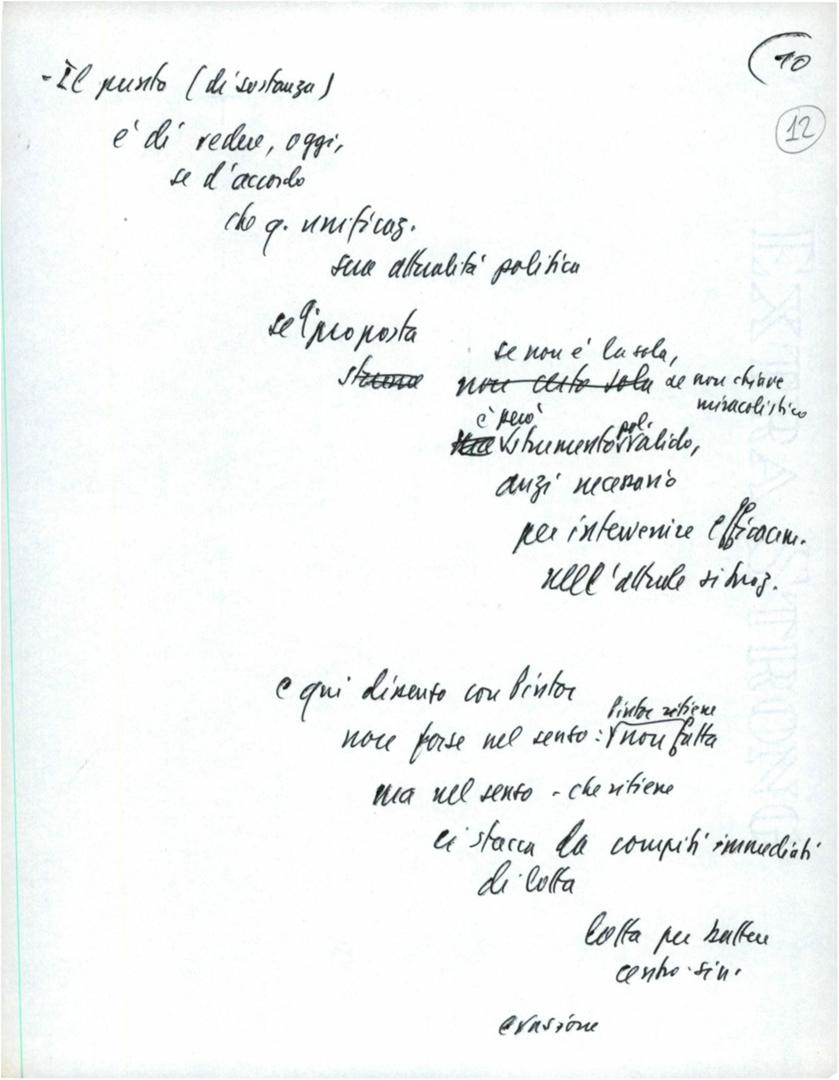 10
12
- Il punto (di sostanza)
è di vedere, oggi,
se d'accordo
che q. unificaz.
sua attualità politica
se l'proposta
se non è la sola,
non certo sola se non chiave
miracolistica
è però pol.
strumento valido,
anzi necessario
per intervenire efficacem.
nell'attuale situaz.
e qui dissento con Pintor
Pintor ritiene
non forse nel senso: non fatta
ma nel senso - che ritiene
ci stacca da compiti immediati
di lotta
lotta per battere
centro-sin.
evasione
EXTRA STRONG